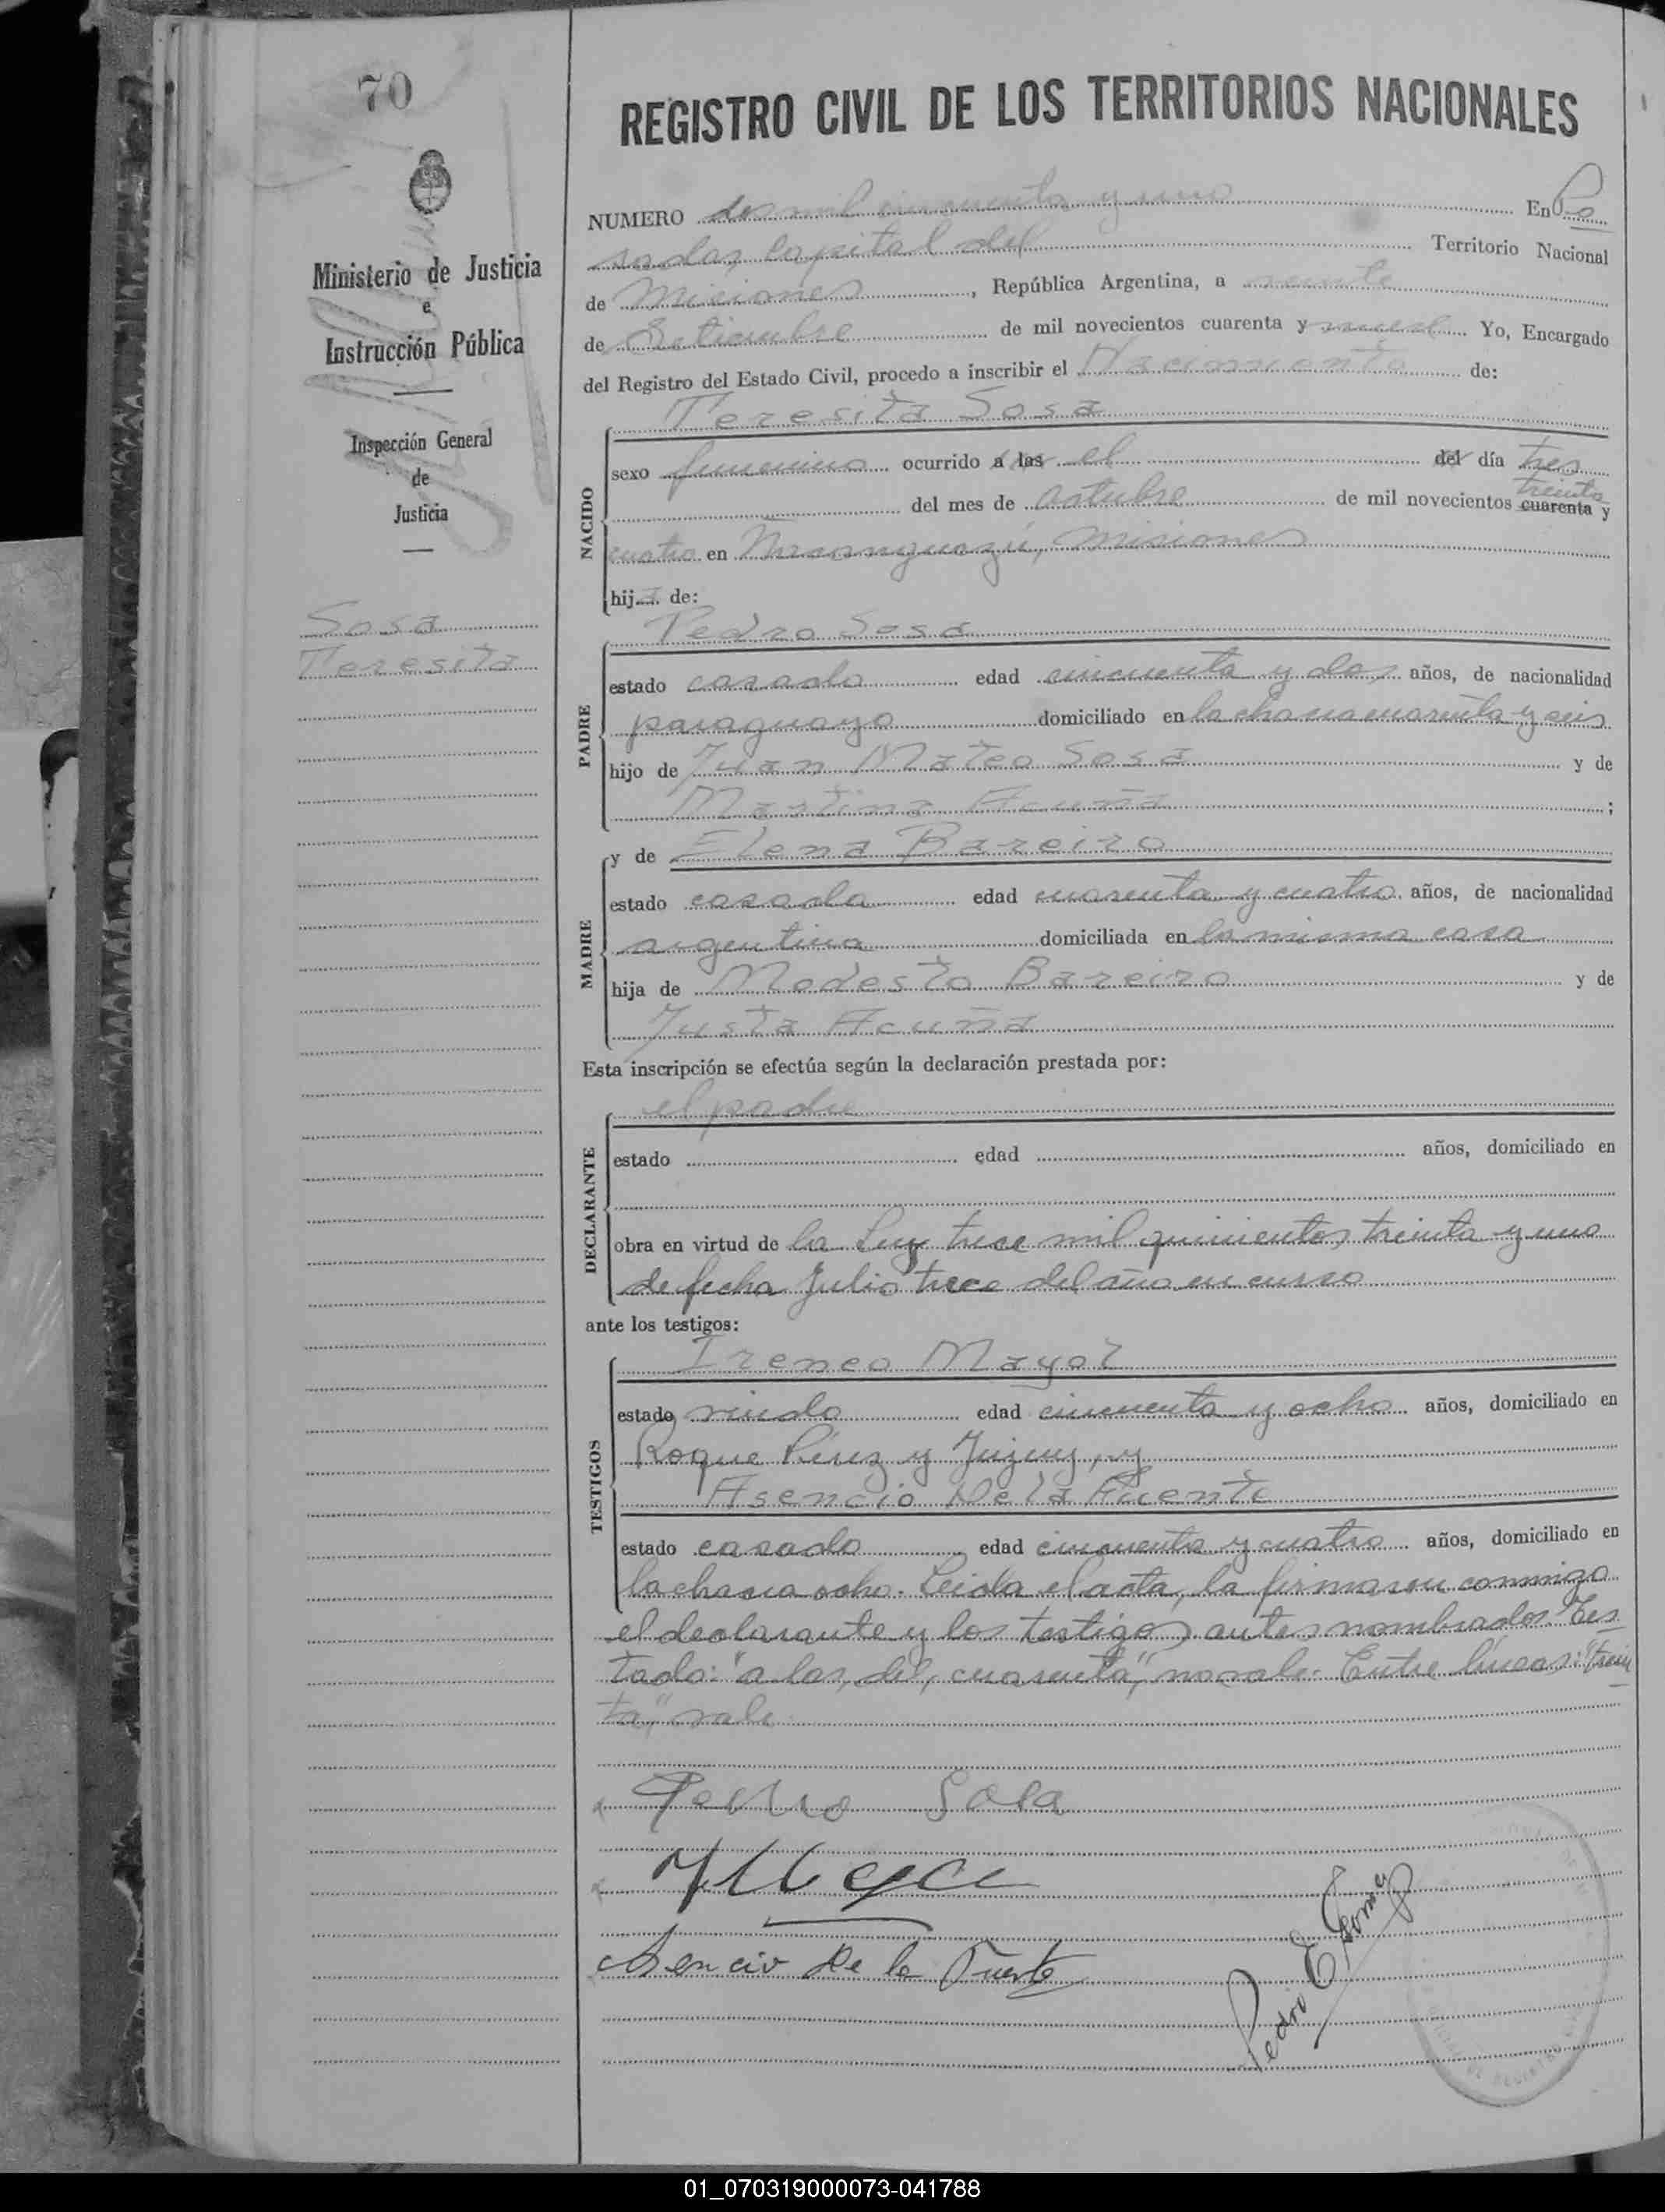 70
REGISTRO CIVIL DE LOS TERRITORIOS NACIONALES
NUMERO dos mil cincuenta y uno En Po
sadas, capital del Territorio Nacional
de Misiones, República Argentina, a veinte
de Setiembre de mil novecientos cuarenta y nueve Yo, Encargado
del Registro del Estado Civil, procedo a inscribir el Nacimiento de:
Ministerio de Justicia
e
Instrucción Pública
Inspección General
de
Justicia
Sosa
Teresita
NACIDO
Teresita Sosa
sexo femenino ocurrido a las el del día tres
treinta
del mes de octubre de mil novecientos cuarenta y
cuatro en Misiones
hija de:
PADRE
Pedro Sosa
estado casado edad cincuenta y dos años, de nacionalidad
paraguayo domiciliado en la chacra cuarenta y seis
hijo de Juan Mateo Sosa y de
Martina Acuña;
MADRE
y de Elena Bareiro
estado casada edad cuarenta y cuatro años, de nacionalidad
argentina domiciliada en la misma casa
hija de Modesto Bareiro y de
Justa Acuña
Esta inscripción se efectúa según la declaración prestada por:
DECLARANTE
el padre
estado edad años, domiciliado en
obra en virtud de la Ley trece mil quinientos treinta y uno
de fecha Julio trece del año en curso
ante los testigos:
TESTIGOS
Ireneo Mayol
estado viudo edad cincuenta y ocho años, domiciliado en
Roque Pérez y Jujuy, y
Asencio De la Fuente
estado casado edad cincuenta y cuatro años, domiciliado en
la chacra ocho. Leida el acta, la firmaron conmigo
el declarante y los testigos antes nombrados. Tes
tado: "a las, del, cuarenta", no vale. Entre líneas: "trein
ta", vale.
Pedro Sosa
Asencio De la Fuente
Pedro E Gomez
01_070319000073-041788